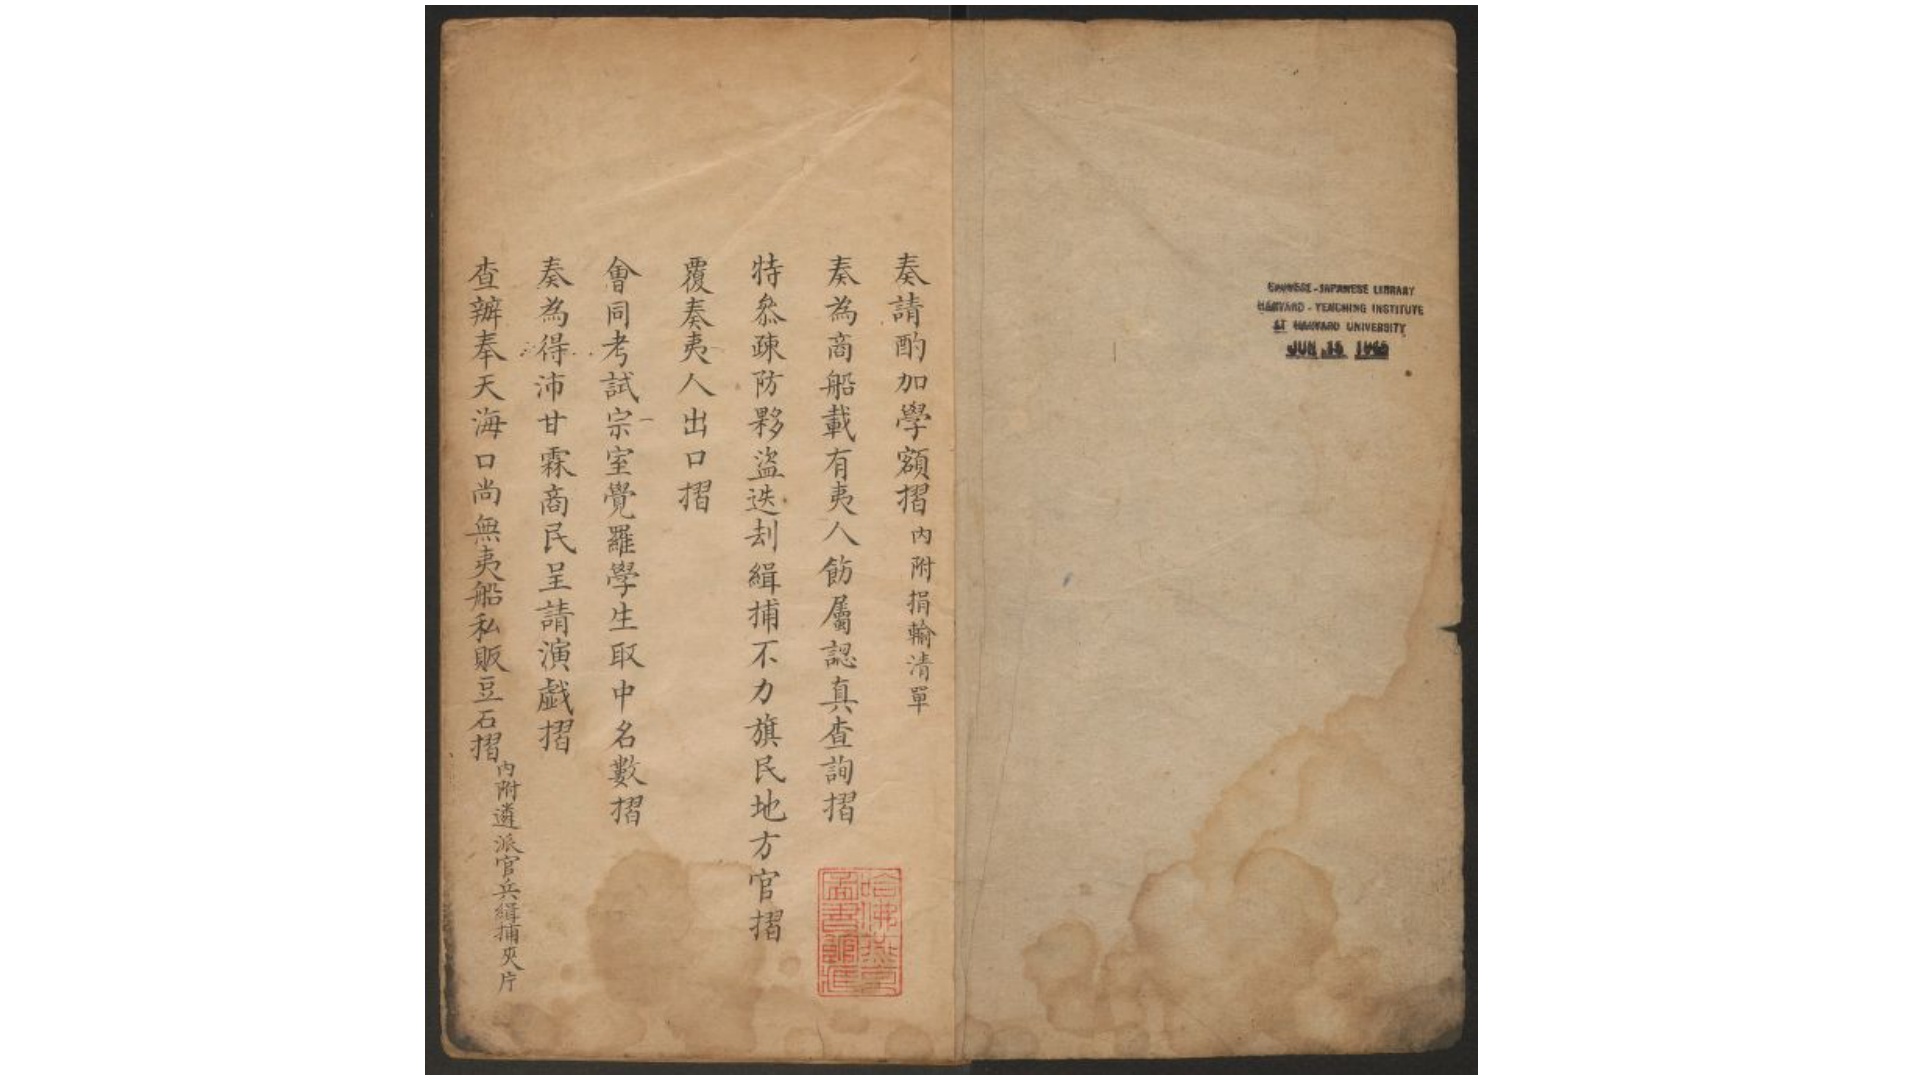 CHINESE-JAPANESE LIBRARY
HARVARD-YENCHING INSTITUTE
AT HARVARD UNIVERSITY
JUN 15 1965
奏請酌加學額摺 內附捐輸清單
奏為商船載有夷人飭屬認真查詢摺
特叅疎防夥盜迭刦緝捕不力旗民地方官摺
覆奏夷人出口摺
會同考試宗室覺羅學生取中名數摺
奏為得沛甘霖商民呈請演戯摺
查辦奉天海口尚無夷船私販豆石摺 內附遴派官兵緝捕夾片
哈佛燕京
圖書館藏